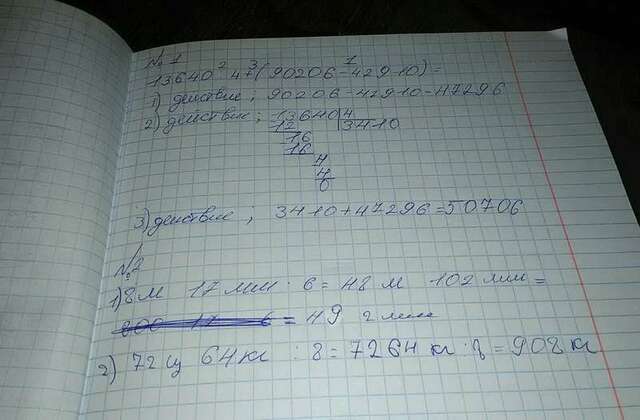 № 1
13640 : 4 + (90206 - 42910) =
1) действие; 90206 - 42910 = 47296
2) действие; 13640 | 4
12 | 3410
16
16
4
4
0
3) действие; 3410 + 47296 = 50706
№2
1) 8 м 17 мм · 6 = 48 м 102 мм =
= 49 2 мм
2) 72 ц 64 кг : 8 = 7264 кг : 8 = 908 кг